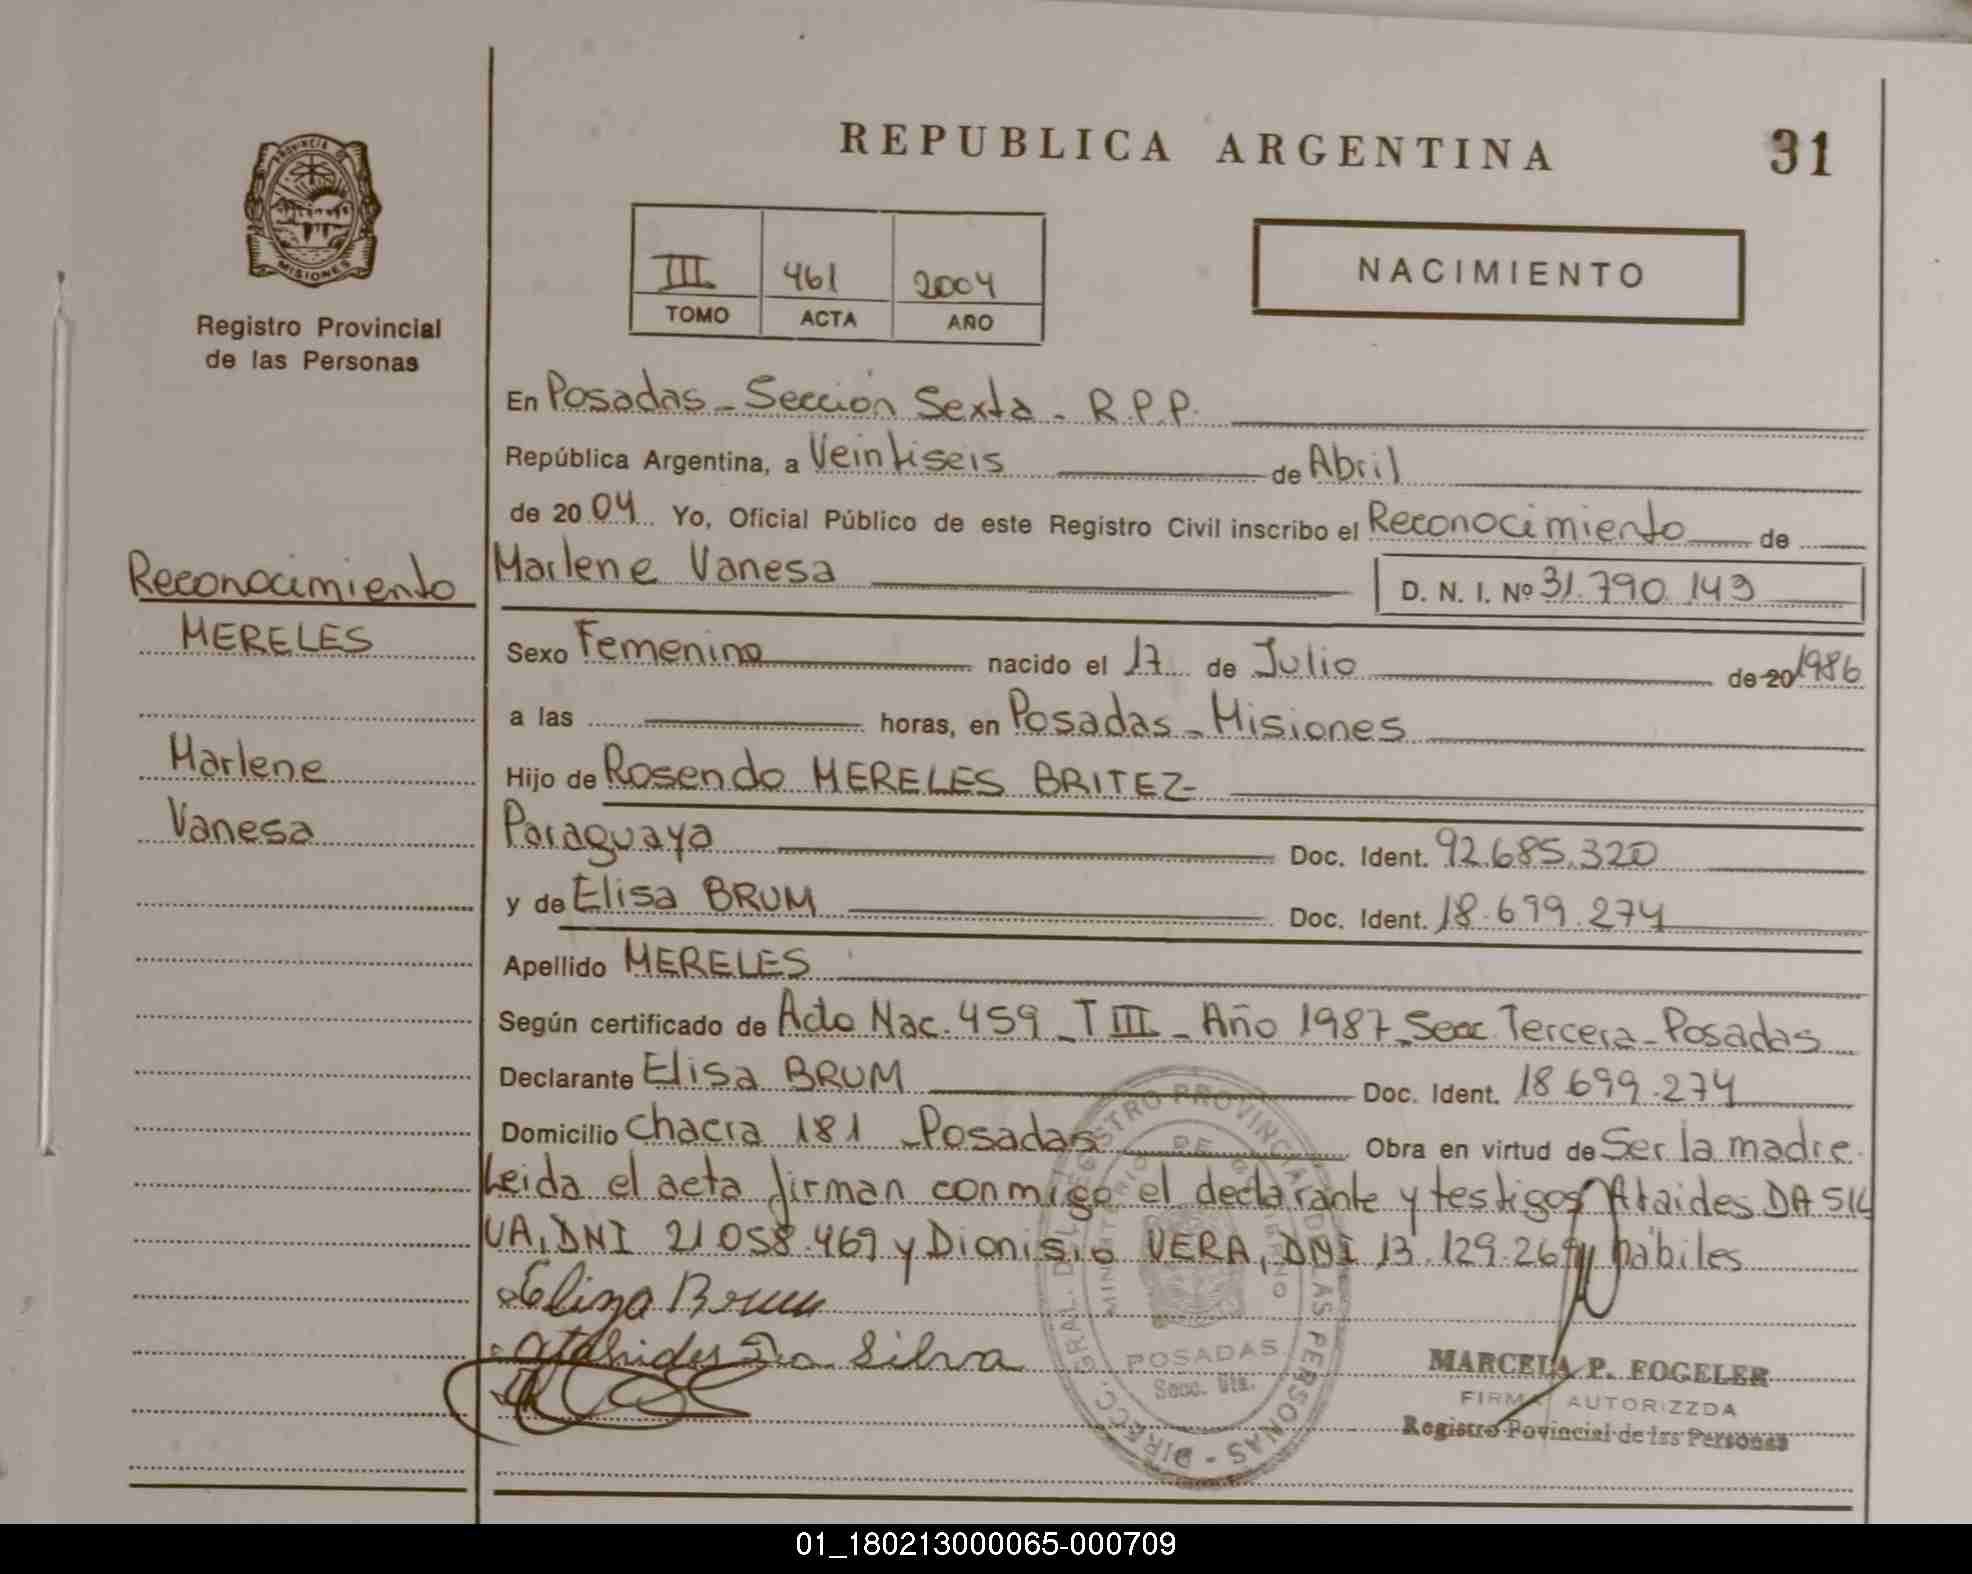 REPUBLICA ARGENTINA
31
PROVINCIA DE
MISIONES
Registro Provincial
de las Personas
III 461 2004
TOMO ACTA AÑO
NACIMIENTO
En Posadas - Sección Sexta - R.P.P.
República Argentina, a Veintiseis de Abril
de 2004 Yo, Oficial Público de este Registro Civil inscribo el Reconocimiento de
Marlene Vanesa D. N. I. Nº 31.790.143
Reconocimiento
MERELES
Marlene
Vanesa
Sexo Femenino nacido el 17 de Julio de 20 1986
a las horas, en Posadas - Misiones
Hijo de Rosendo MERELES BRITEZ-
Paraguayo Doc. Ident. 92.685.320
y de Elisa BRUM Doc. Ident. 18.699.274
Apellido MERELES
Según certificado de Acta Nac. 459 - T III - Año 1987 - Secc. Tercera - Posadas
Declarante Elisa BRUM Doc. Ident. 18.699.274
Domicilio Chacra 181 - Posadas Obra en virtud de Ser la madre.
Leida el acta firman conmigo el declarante y testigos Ataides DA SIL
VA, DNI 21.058.469 y Dionisio VERA, DNI 13.129.26 hábiles
Eliza Brum
Da Silva
DIRECC. GRAL. DEL REGISTRO PROVINCIAL DE LAS PERSONAS
MINISTERIO DE GOBIERNO
POSADAS
Secc. 6ta.
MARCELA P. FOGELER
FIRMA AUTORIZZDA
Registro Povincial de las Personas
01_180213000065-000709